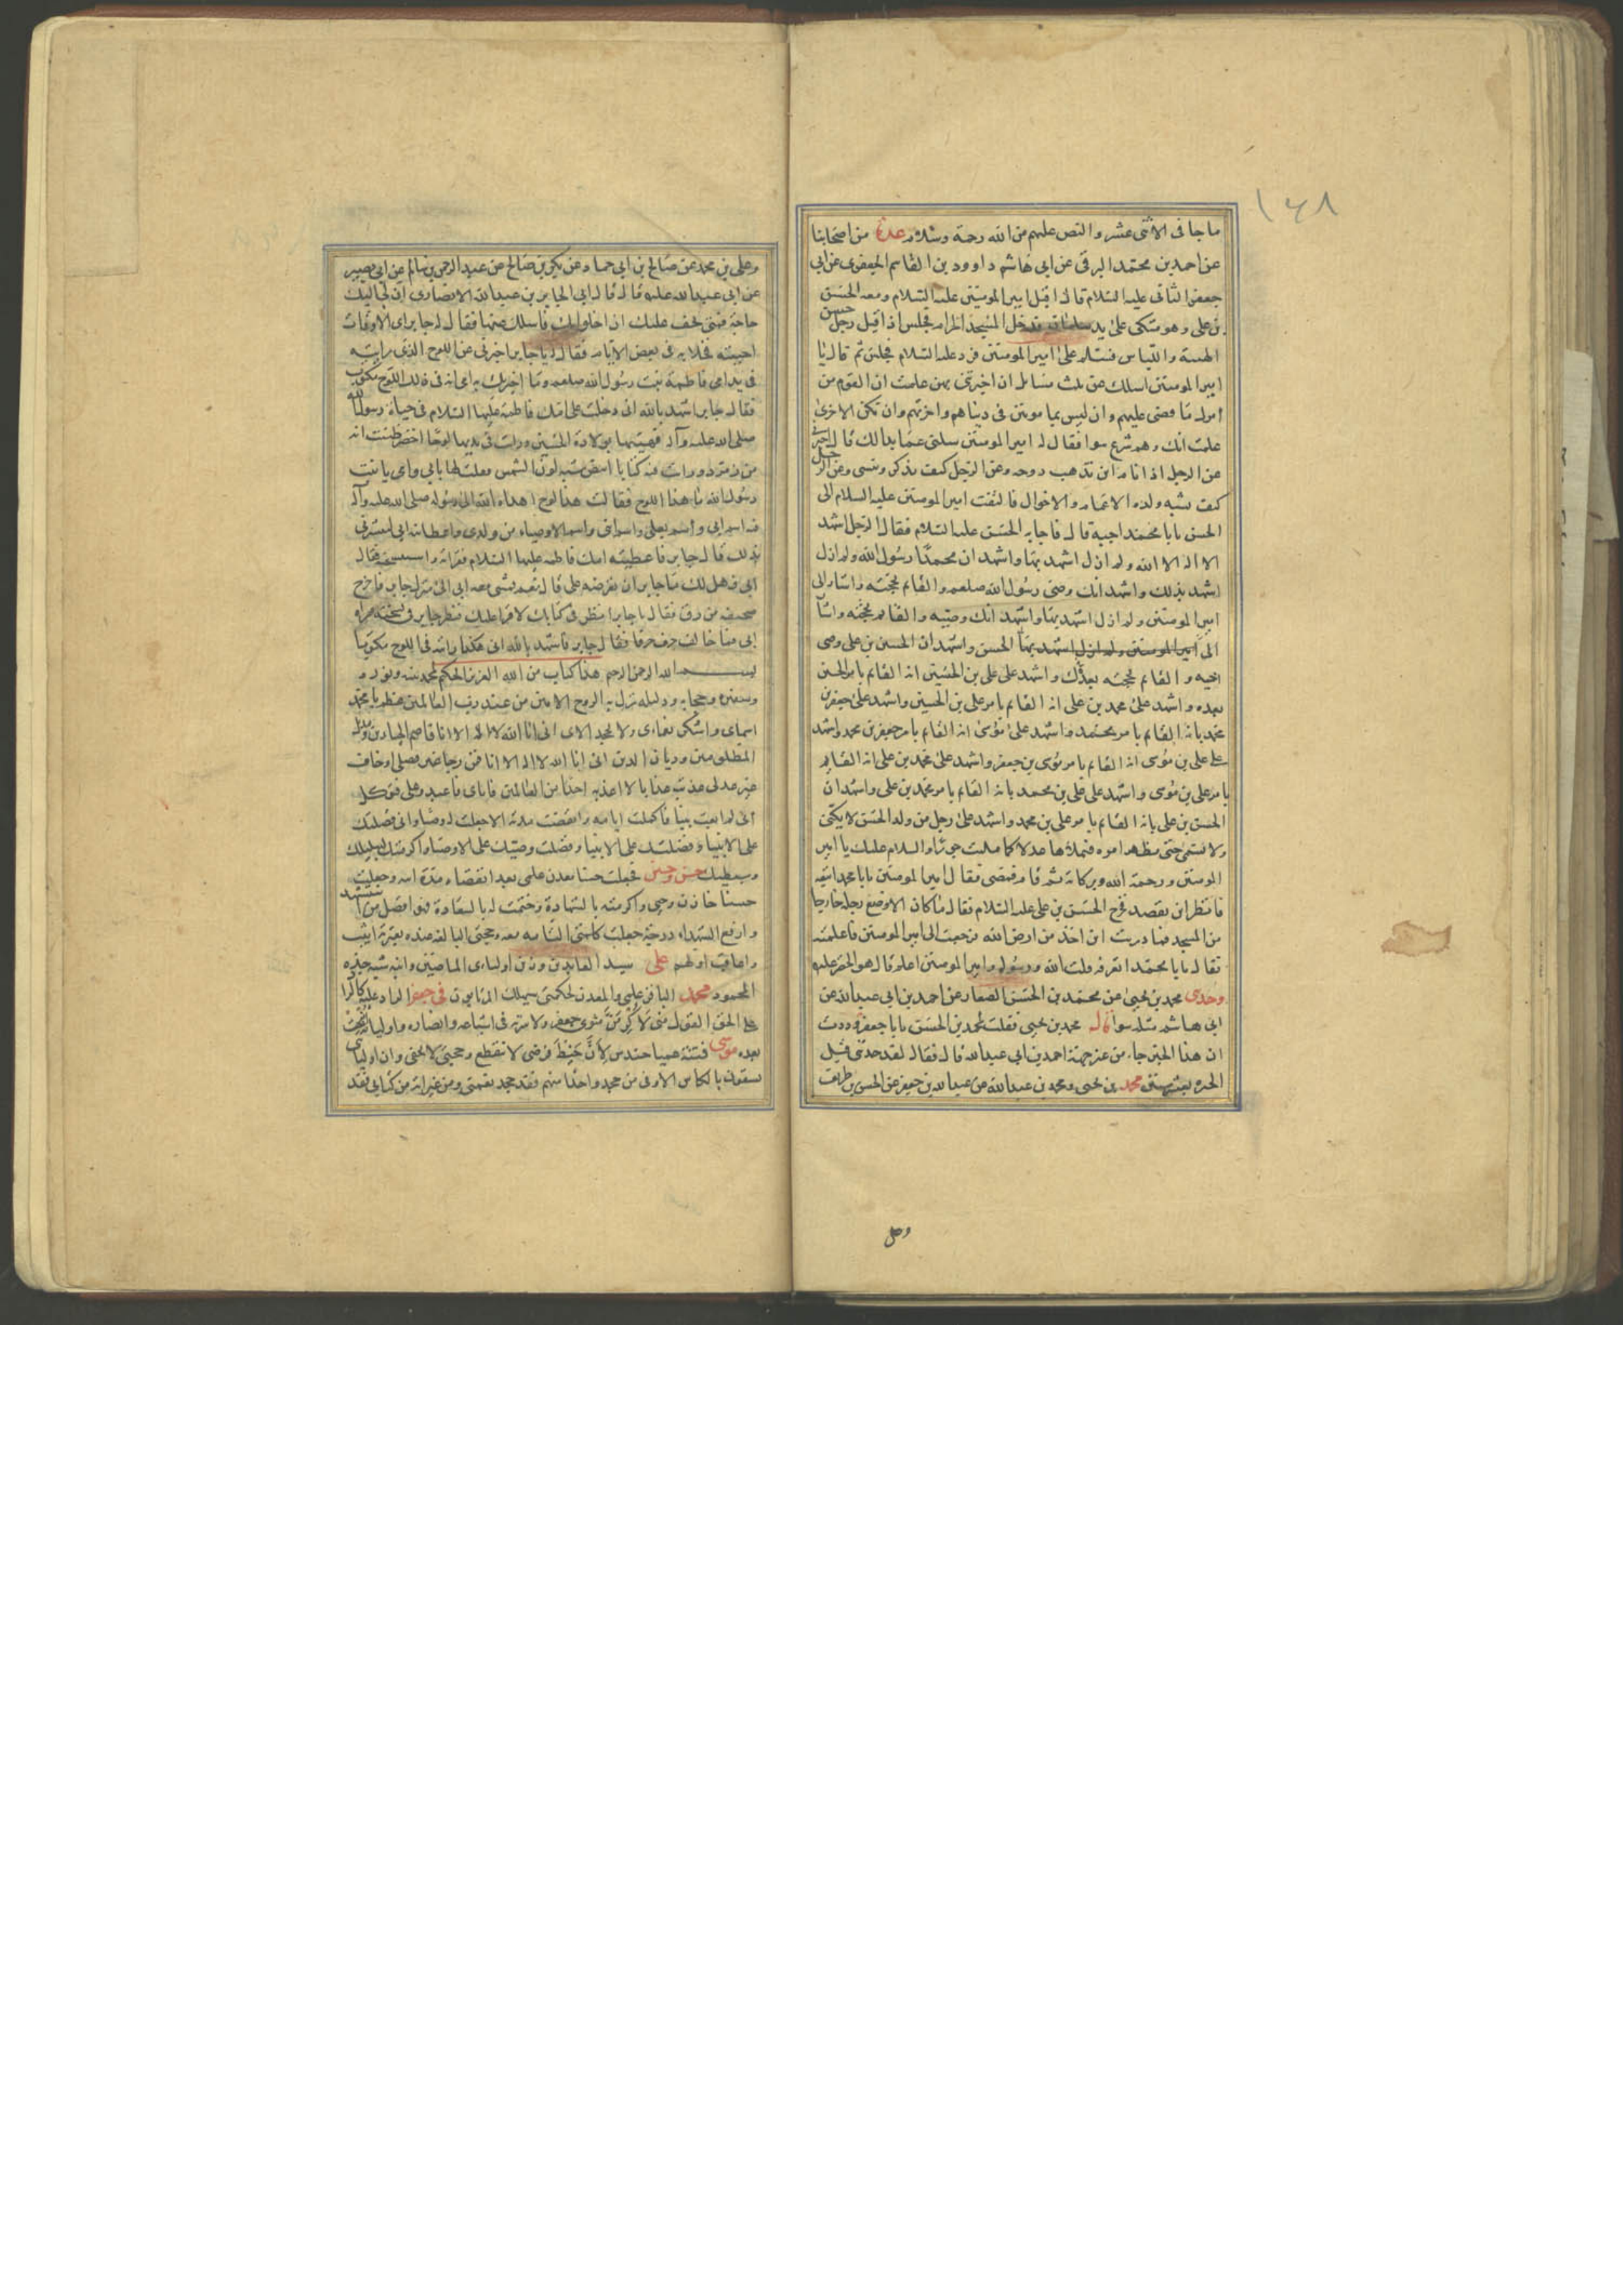 ١٤٨
ما جا فى الاثنى عشر والنص عليهم من الله رحمة وسلام عدة من اصحابنا
عن احمد بن محمد البرقى عن ابى هاشم داوود بن القاسم الجعفرى عن ابى
جعفر الثانى عليه السلام قال اقبل امير المومنين عليه السلام ومعه الحسن
بن على وهو متكى على يد سلمان فدخل المسجد الحرام فجلس اذ اقبل رجل حسن
الهيئة واللباس فسلم على امير المومنين فرد عليه السلام فجلس ثم قال يا
امير المومنين اسلك عن ثلث مسايل ان اخبرتنى بهن علمت ان القوم من
امرك ما قضى عليهم وان ليس بمامونين فى دنياهم واخرتهم وان تكن الاخرى
علمت انك وهم شرع سوا فقال له امير المومنين سلنى عما بدا لك قال اخبرنى
عن الرجل اذا نام اين تذهب روحه وعن الرجل كيف يذكر وينسى وعن الرجل
كيف يشبه ولده الاعمام والاخوال فالتفت امير المومنين عليه السلام الى
الحسن يابا محمد اجبه قال فاجابه الحسن عليه السلام فقال الرجل اشهد
الا اله الا الله ولم ازل اشهد بها واشهد ان محمدا رسول الله ولم ازل
اشهد بذلك واشهد انك وصى رسول الله صلعم والقائم بحجته واشار الى
امير المومنين ولم ازل اشهد بها واشهد انك وصيه والقائم بحجته واشا
الى امير المومنين ولم ازل اشهد بها الحسن واشهد ان الحسين بن على وصى
اخيه والقائم بحجته بعدك واشهد على على بن الحسين انه القائم بامر الحسين
بعده واشهد على محمد بن على انه القائم بامر على بن الحسين واشهد على جعفر بن
محمد بانه القائم بامر محمد واشهد على موسى انه القائم بامر جعفر بن محمد واشهد
على على بن موسى انه القائم بامر موسى بن جعفر واشهد على محمد بن على انه القايم
بامر على بن موسى واشهد على على بن محمد بانه القائم بامر محمد بن على واشهد ان
الحسن بن على بانه القائم بامر على بن محمد واشهد على رجل من ولد الحسن لا يكنى
ولا يسمى حتى يظهر امره فيملاها عدلا كما ملئت جورا والسلام عليك يا امير
المومنين ورحمة الله وبركاته ثم قام فمضى فقال امير المومنين يابا محمد اتبعه
فانظر اين يقصد فخرج الحسن بن على عليه السلام فقال ما كان الا وضع رجله خارجا
من المسجد فما دريت اين اخذ من ارض الله فرجعت الى امير المومنين فاعلمته
فقال يابا محمد اتعرفه قلت الله ورسوله وامير المومنين اعلم قال هو الخضر عليه
وحدثنى محمد بن يحيى عن محمد بن الحسن الصفار عن احمد بن ابى عبد الله عن
ابى هاشم مثله سوا قال محمد بن يحيى فقلت لمحمد بن الحسن يابا جعفر وددت
ان هذا الخبر جاء من غير جهة احمد بن ابى عبد الله قال فقال لقد حدثنى قبل
الحيرة بعشر سنين محمد بن يحيى ومحمد بن عبد الله عن عبد الله بن جعفر عن الحسن بن ظريف
وعلى
وعلى بن محمد عن صالح بن ابى حماد عن بكر بن صالح عن عبد الرحمن بن سالم عن ابى بصير
عن ابى عبد الله عليه قال قال ابى لجابر بن عبد الله الانصارى ان لى اليك
حاجة فمتى يخف عليك ان اخلو بك فاسلك عنها فقال له جابر اى الاوقات
احببته فخلا به فى بعض الايام فقال له يا جابر اخبرنى عن اللوح الذى رايته
فى يد امى فاطمة بنت رسول الله صلعم وما اخبرتك به امى انه فى ذلك اللوح مكتوب
فقال جابر اشهد بالله انى دخلت على امك فاطمة عليها السلام فى حياة رسول الله
صلى الله عليه وآله فهنيتها بولادة الحسين ورايت فى يديها لوحا اخضر ظننت انه
من زمرد ورايت فيه كتابا ابيض شبه لون الشمس فقلت لها بابى وامى يا بنت
رسول الله ما هذا اللوح فقالت هذا لوح اهداه الله الى رسوله صلى الله عليه وآله
فيه اسم ابى واسم بعلى واسم ابنى واسم الاوصياء من ولدى واعطانيه ابى ليبشرنى
بذلك قال جابر فاعطيته امك فاطمة عليها السلام فقراته واستنسخته فقال
ابى فهل لك يا جابر ان تعرضه على قال نعم فمشى معه ابى الى منزل جابر فاخرج
صحيفه من رق فقال يا جابر انظر فى كتابك لاقرا عليك فنظر جابر فى نسخته فقراه
ابى فما خالف حرف حرفا فقال جابر فاشهد بالله انى هكذا رايته فى اللوح مكتوبا
بسم الله الرحمن الرحيم هذا كتاب من الله العزيز الحكيم لمحمد نبيه ونوره
وسفيره وحجابه ودليله نزل به الروح الامين من عند رب العالمين عظم يا محمد
اسماى واشكر نعماى ولا تجحد الاى انى انا الله لا اله الا انا قاصم الجبارين ومديل
المظلومين وديان الدين انى انا الله لا اله الا انا فمن رجا غير فضلى او خاف
غير عدلى عذبته عذابا لا اعذبه احدا من العالمين فاياى فاعبد وعلى فتوكل
انى لم ابعث نبيا فاكملت ايامه وانقضت مدته الا جعلت له وصيا وانى فضلتك
على الانبياء وفضلتك على الانبيا وفضلت وصيك على الاوصيا واكرمتك بشبليك
وسبطيك حسن وحسين فجعلت حسنا معدن علمى بعد انقضاء مدة ابيه وجعلت
حسينا خازن وحيى واكرمته بالشهادة وختمت له بالسعادة فهو افضل من استشهد
وارفع الشهداء درجة جعلت كلمتى التامه معه وحجتى البالغه عنده بعترته اثيب
واعاقب اولهم على سيد العابدين وزين اولياءى الماضيين وابنه شبه جده
المحمود محمد الباقر علمى والمعدن لحكمتى سيهلك المرتابون فى جعفر الراد عليه كالراد
على الحق القول منى لاكرمن مثوى جعفر ولاسرنه فى اشياعه وانصاره واوليائه
بعده موسى فتنة عميا حندس لان خيط فرضى لا ينقطع وحجتى لا تخفى وان اوليائى
يسقون بالكاس الاوفى من جحد واحدا منهم فقد جحد نعمتى ومن غير اية من كتابى فقد